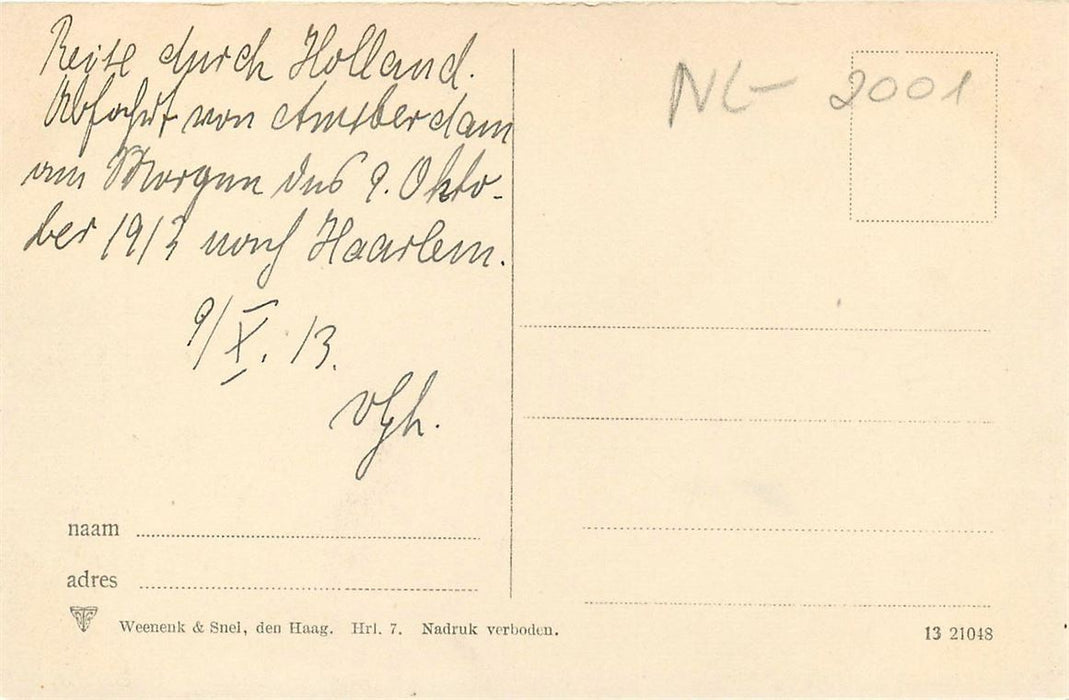 Reise durch Holland.
Abfahrt von Amsterdam
am Morgen des 9. Okto-
ber 1913 nach Haarlem.
9/X. 13.
NL- 2001
naam
adres
Weenenk & Snel, den Haag. Hrl. 7. Nadruk verboden.
13 21048